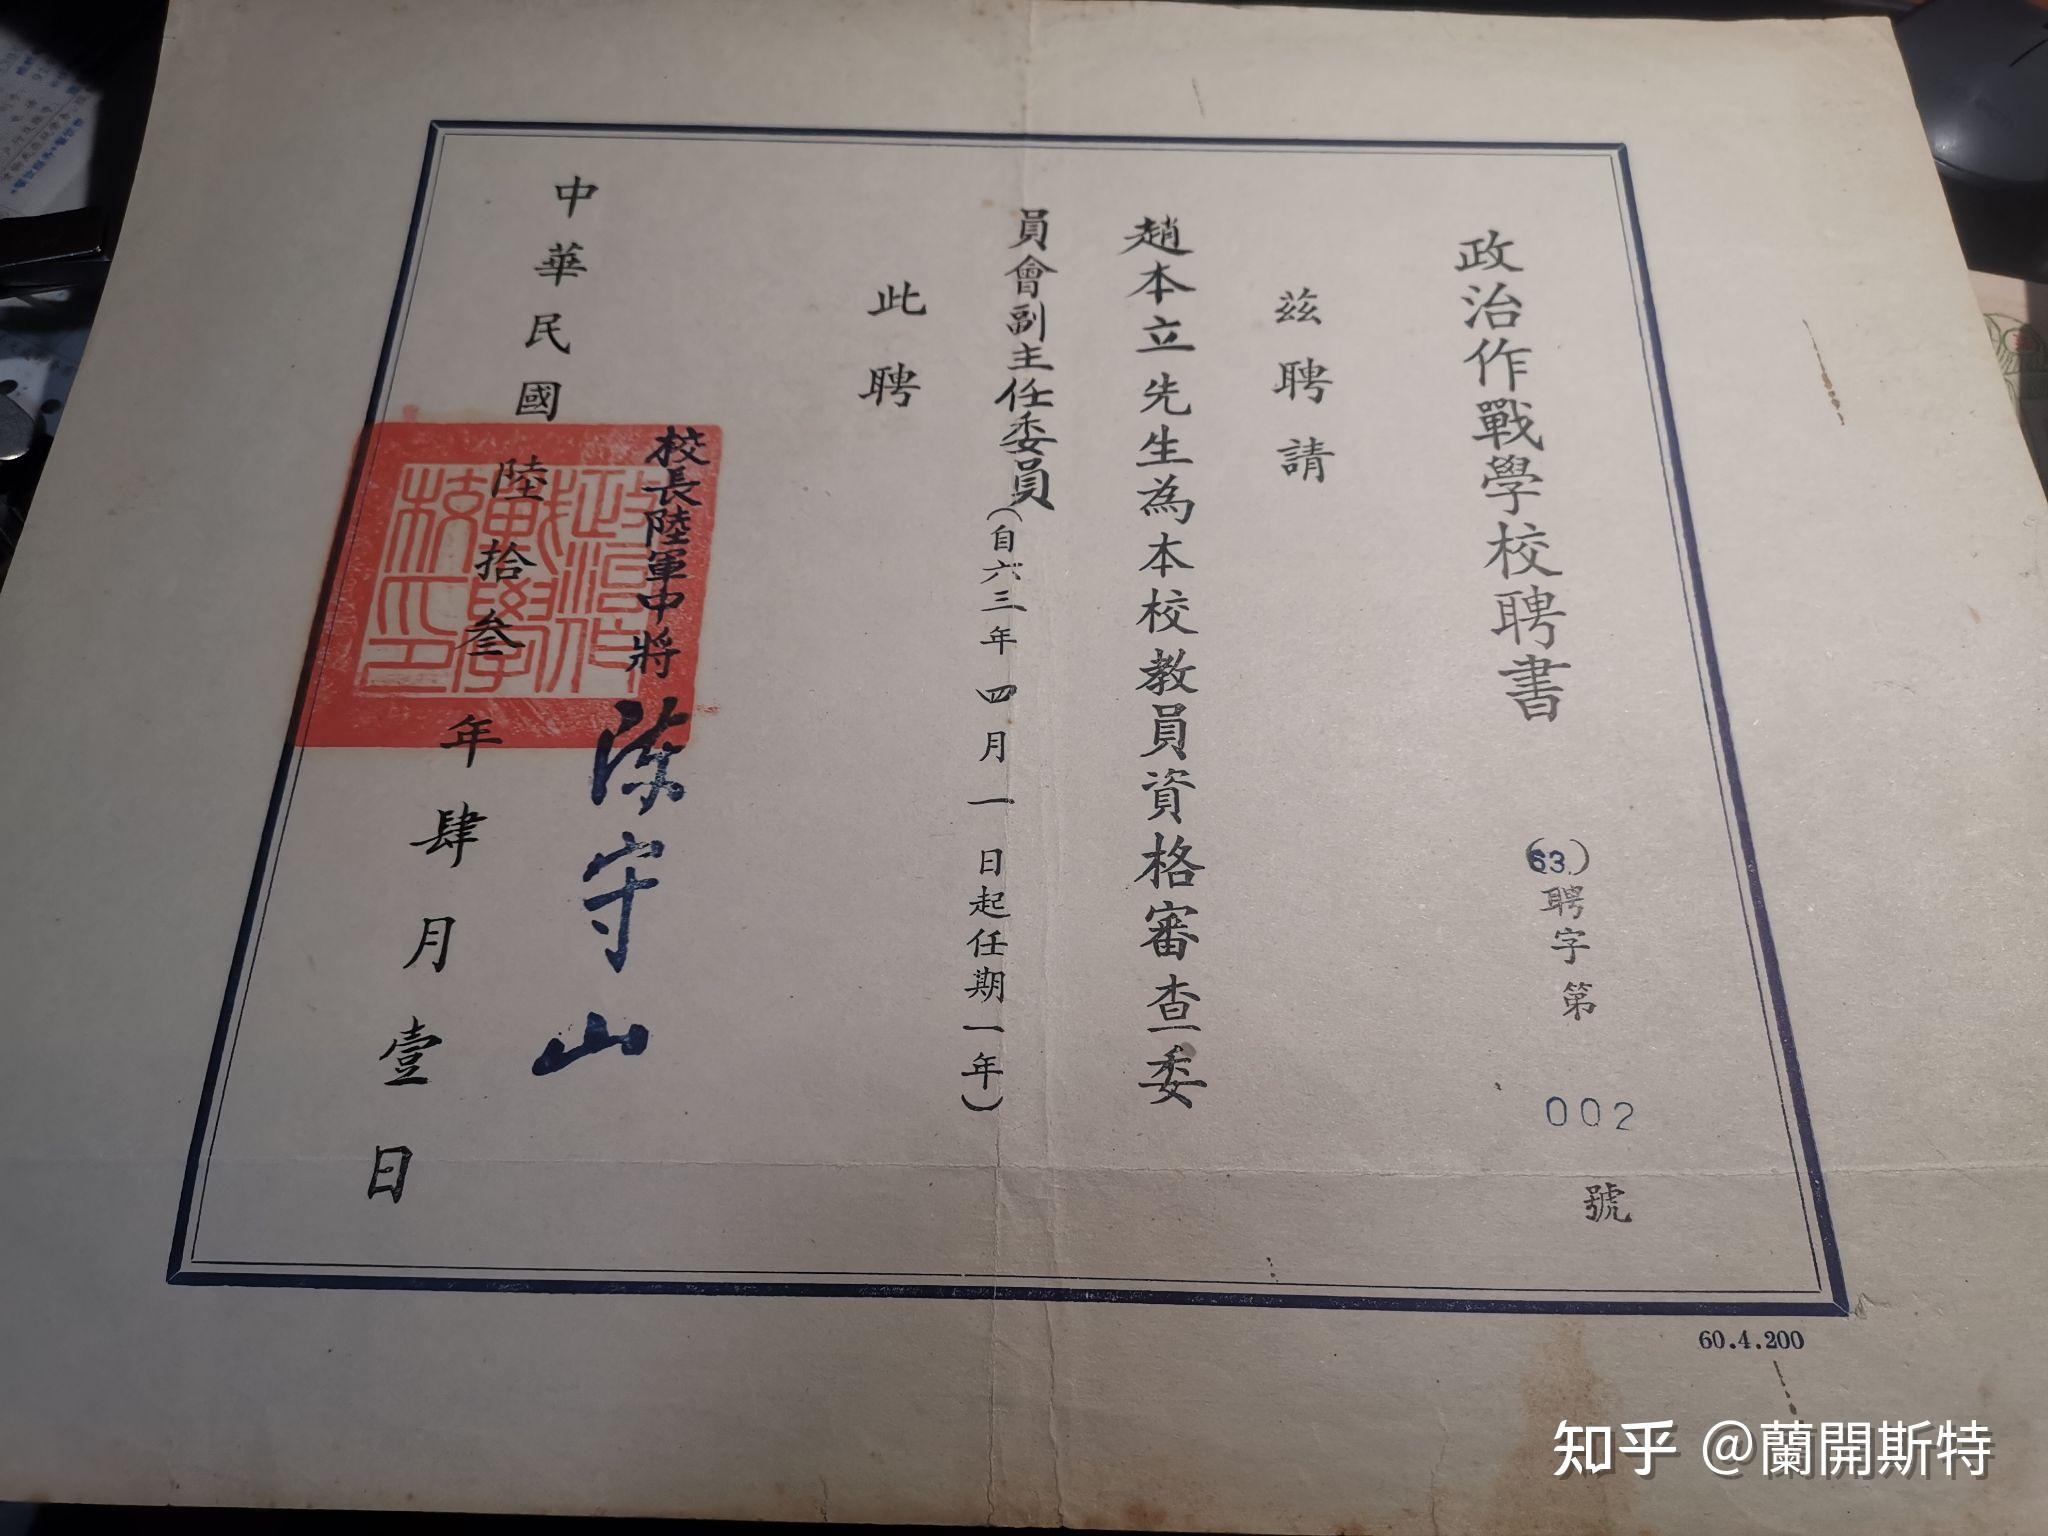 政治作戰學校聘書
(63.)聘字第 002 號
茲聘請
趙本立先生為本校教員資格審查委
員會副主任委員(自六三年四月一日起任期一年)
此聘
校長陸軍中將 陳守山
政治作戰學校印
中華民國陸拾叁年肆月壹日
60.4.200
知乎 @蘭開斯特